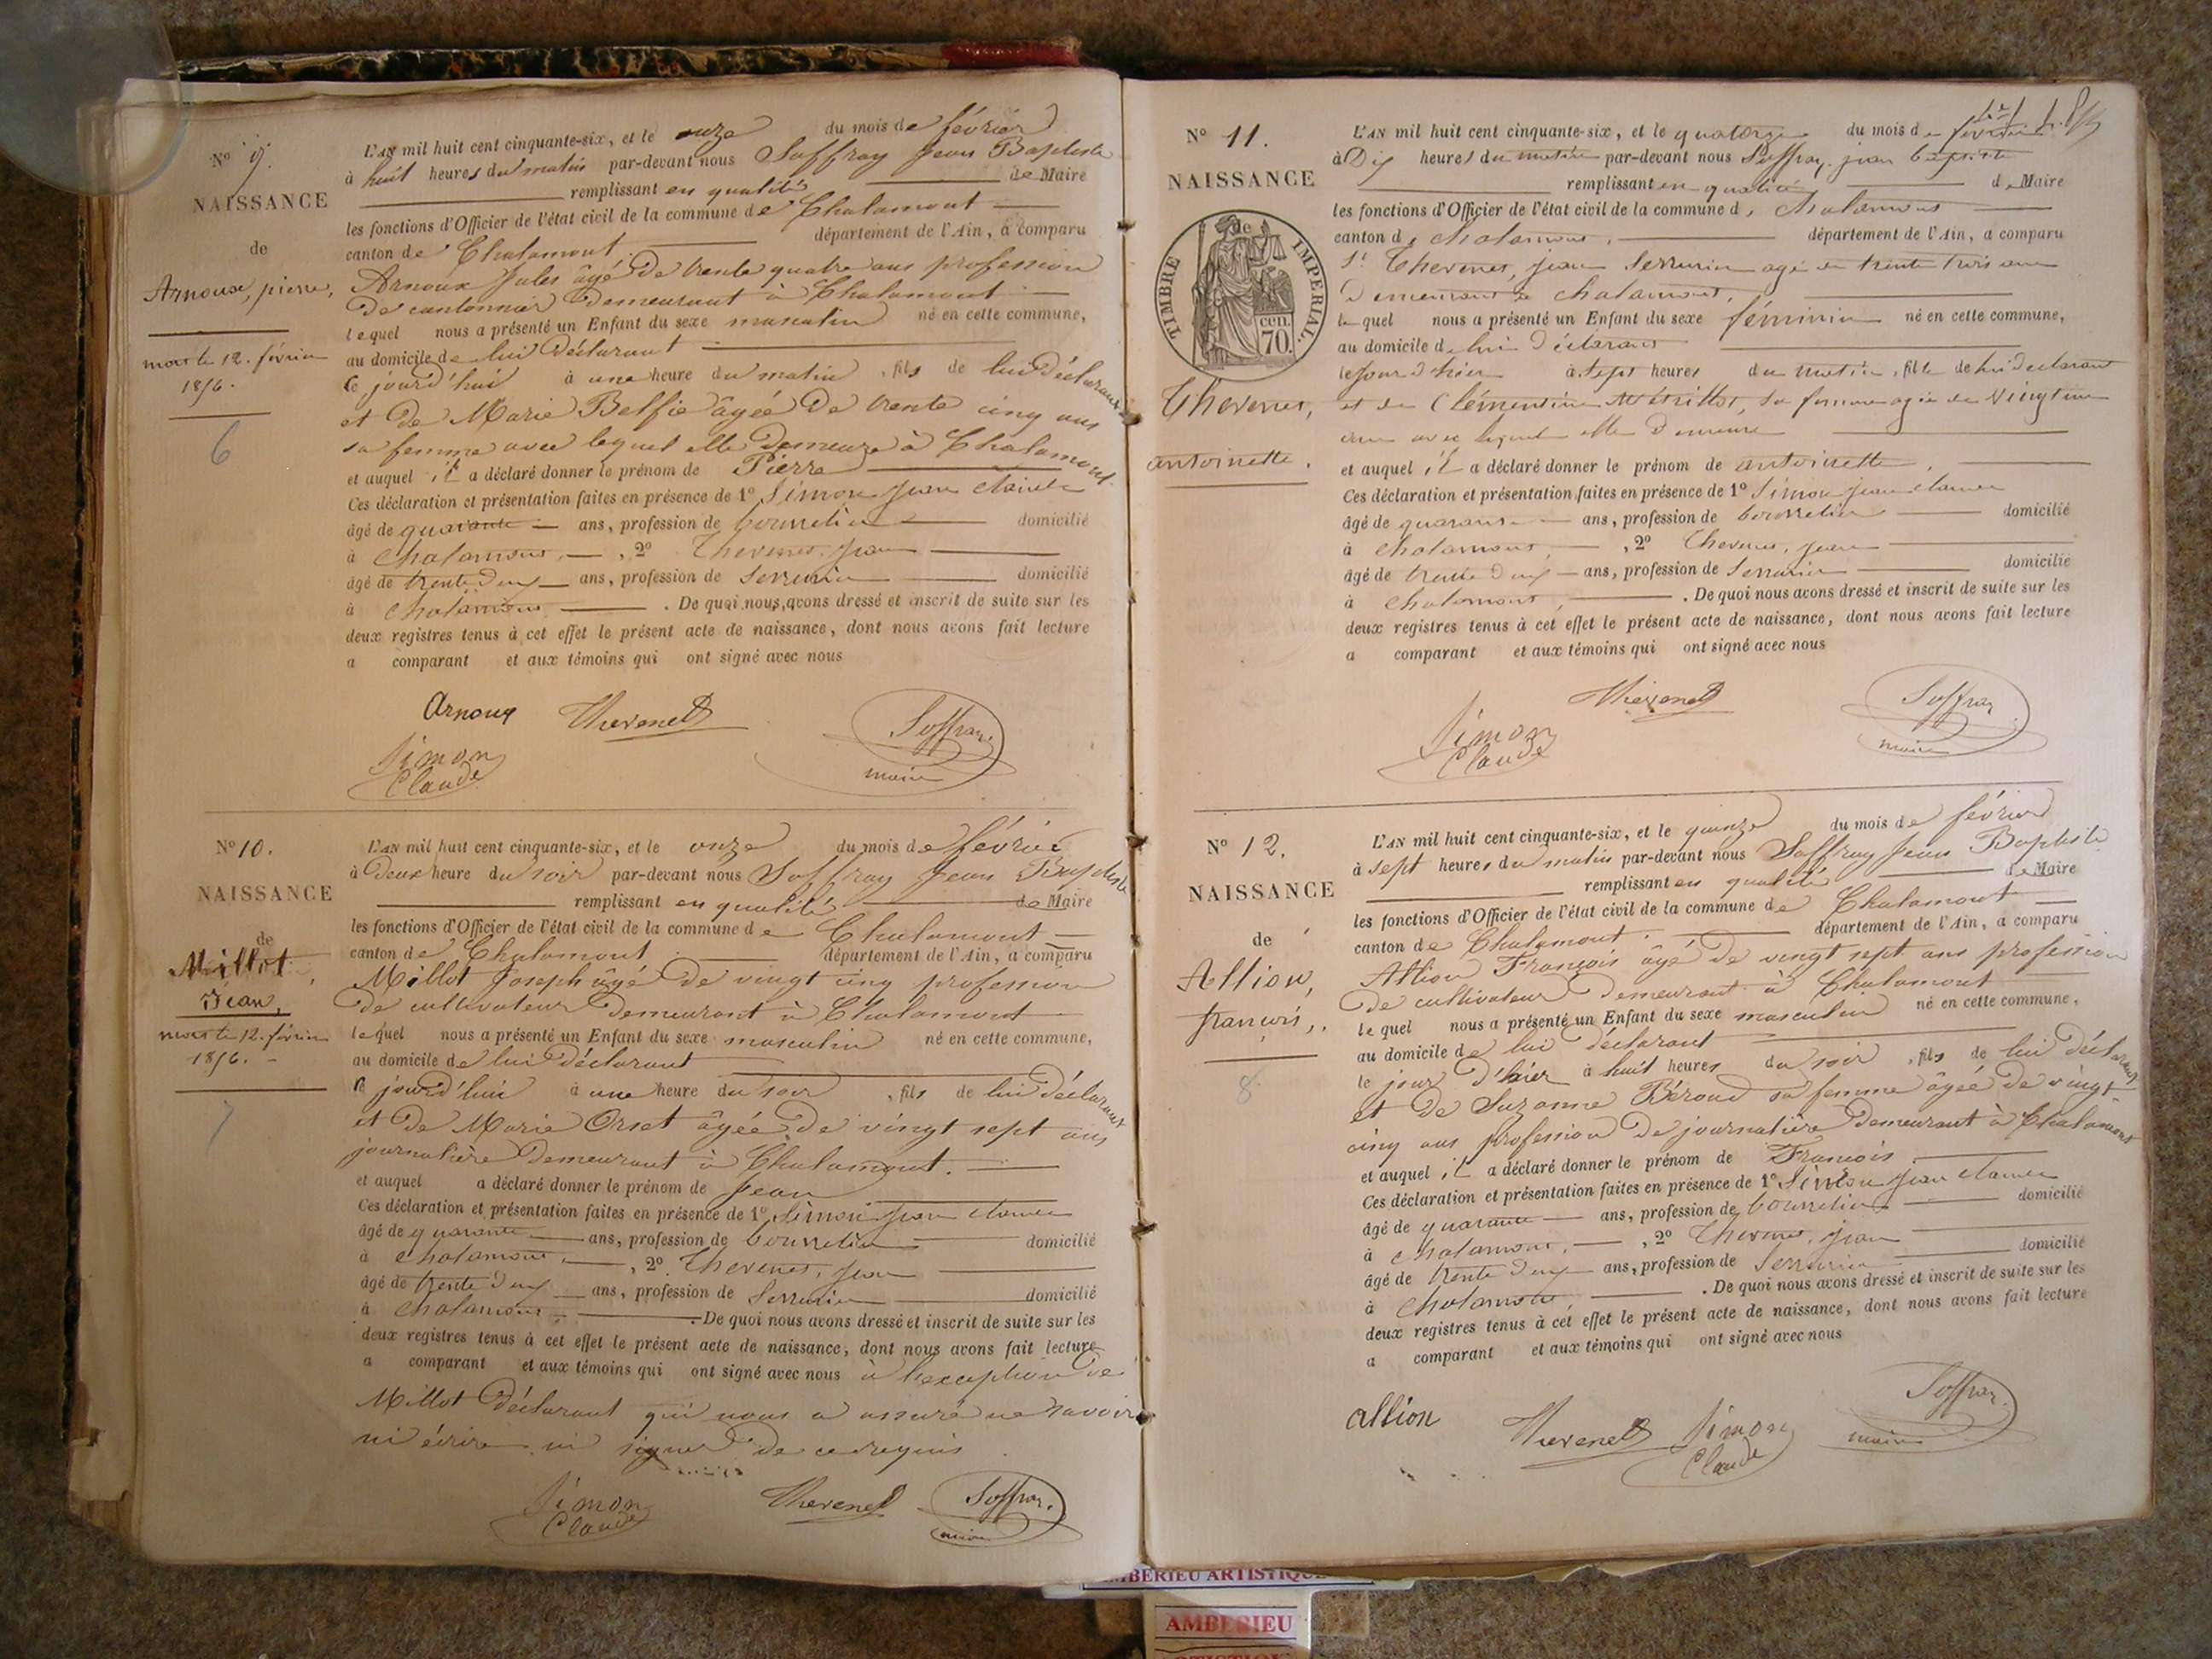 N° 9.
NAISSANCE
de
Arnoux, pierre,
mort le 12. février
1856.
6
L'AN mil huit cent cinquante-six, et le onze du mois de février
à huit heures du matin par-devant nous Soffray Jean Baptiste
remplissant en qualité de Maire
les fonctions d'Officier de l'état civil de la commune de Chalamont
canton de Chalamont département de l'Ain, a comparu
Arnoux Jules âgé de trente quatre ans profession
de cantonnier demeurant à Chalamont
lequel nous a présenté un Enfant du sexe masculin né en cette commune,
au domicile de lui déclarant
ce jourd'hui à une heure du matin, fils de lui déclarant
et de Marie Belfie âgée de trente cinq ans
sa femme avec lequel elle demeure à Chalamont.
et auquel il a déclaré donner le prénom de Pierre
Ces déclaration et présentation faites en présence de 1° Simon Jean Claude
âgé de quarante ans, profession de bourrelier domicilié
à Chalamont, 2° Thevenet, Jean
âgé de trente deux ans, profession de Serrurier domicilié
à Chalamont. De quoi nous avons dressé et inscrit de suite sur les
deux registres tenus à cet effet le présent acte de naissance, dont nous avons fait lecture
a comparant et aux témoins qui ont signé avec nous
Arnoux Thevenet Soffray
Simon maire
Claude
N° 10.
NAISSANCE
de
Millot
Jean,
mort le 12. février
1856.
7
L'AN mil huit cent cinquante-six, et le onze du mois de février
à deux heure du soir par-devant nous Soffray Jean Baptiste
remplissant en qualité de Maire
les fonctions d'Officier de l'état civil de la commune de Chalamont
canton de Chalamont département de l'Ain, a comparu
Millot Joseph âgé de vingt cinq profession
de cultivateur demeurant à Chalamont
lequel nous a présenté un Enfant du sexe masculin né en cette commune,
au domicile de lui déclarant
ce jourd'hui à une heure du soir, fils de lui déclarant
et de Marie Orset âgée de vingt sept ans
journalière demeurant à Chalamont.
et auquel a déclaré donner le prénom de Jean
Ces déclaration et présentation faites en présence de 1° Simon Jean Claude
âgé de quarante ans, profession de bourrelier domicilié
à Chalamont, 2° Thevenet, Jean
âgé de trente deux ans, profession de Serrurier domicilié
à Chalamont. De quoi nous avons dressé et inscrit de suite sur les
deux registres tenus à cet effet le présent acte de naissance, dont nous avons fait lecture
a comparant et aux témoins qui ont signé avec nous à l'exception de
Millot déclarant qui nous a assuré ne savoir
ni écrire ni signer de ce requis
Simon Thevenet Soffray
Claude maire
N° 11.
NAISSANCE
de
TIMBRE IMPERIAL.
cen. 70.
Thevenet,
antoinette.
L'AN mil huit cent cinquante-six, et le quatorze du mois de février
à Dix heures du matin par-devant nous Soffray, jean baptiste
remplissant en qualité de Maire
les fonctions d'Officier de l'état civil de la commune de Chalamont
canton de Chalamont, département de l'Ain, a comparu
Sr Thevenet, Jean Serrurier agé de trente trois ans
Demeurant à Chalamont,
lequel nous a présenté un Enfant du sexe féminin né en cette commune,
au domicile de lui Déclarant
le jour d'hier à Sept heures du matin, fille de lui declarant
et de Clémentine Métrillot, sa femme agée de Vingt un
ans avec lequel elle Demeure
et auquel il a déclaré donner le prénom de antoinette,
Ces déclaration et présentation faites en présence de 1° Simon jean claude
âgé de quarante ans, profession de bourrelier domicilié
à Chalamont, 2° Thevenet, Jean
âgé de trente deux ans, profession de Serrurier domicilié
à Chalamont, . De quoi nous avons dressé et inscrit de suite sur les
deux registres tenus à cet effet le présent acte de naissance, dont nous avons fait lecture
a comparant et aux témoins qui ont signé avec nous
Thevenet Soffray
Simon maire
Claude
N° 12.
NAISSANCE
de
Allion,
françois,
8
L'AN mil huit cent cinquante-six, et le quinze du mois de février
à sept heures du matin par-devant nous Soffray Jean Baptiste
remplissant en qualité de Maire
les fonctions d'Officier de l'état civil de la commune de Chalamont
canton de Chalamont. département de l'Ain, a comparu
Allion François âgé de vingt sept ans profession
de cultivateur demeurant à Chalamont
lequel nous a présenté un Enfant du sexe masculin né en cette commune,
au domicile de lui déclarant
le jour d'hier à huit heures du soir, fils de lui déclarant
et de Suzanne Béroud sa femme âgée de vingt
cinq ans profession de journalière demeurant à Chalamont
et auquel il a déclaré donner le prénom de François
Ces déclaration et présentation faites en présence de 1° Simon Jean Claude
âgé de quarante ans, profession de bourrelier domicilié
à Chalamont, 2° Thevenet, Jean
âgé de trente deux ans, profession de Serrurier domicilié
à Chalamont, . De quoi nous avons dressé et inscrit de suite sur les
deux registres tenus à cet effet le présent acte de naissance, dont nous avons fait lecture
a comparant et aux témoins qui ont signé avec nous
allion Thevenet Simon Soffray
Claude maire
AMBERIEU ARTISTIQUE
AMBERIEU